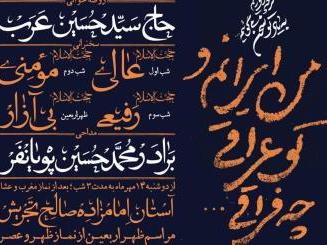 روضه خوانی
حاج سید حسین عرب
سخنرانی
حجت الاسلام عالی شب اول
حجت الاسلام مومنی شب دوم
حجت الاسلام رفیعی شب سوم
حجت الاسلام بی آزار ظهر اربعین
مداحی
برادر محمدحسین پویانفر
از دوشنبه ۱۳ مهرماه به مدت ۳ شب؛ بعد از نماز مغرب و عشا
آستان امامزاده صالح تجریش
مراسم ظهر اربعین از نماز ظهر و عصر
من ایرانم و
تو عراقی
چه فراقی...